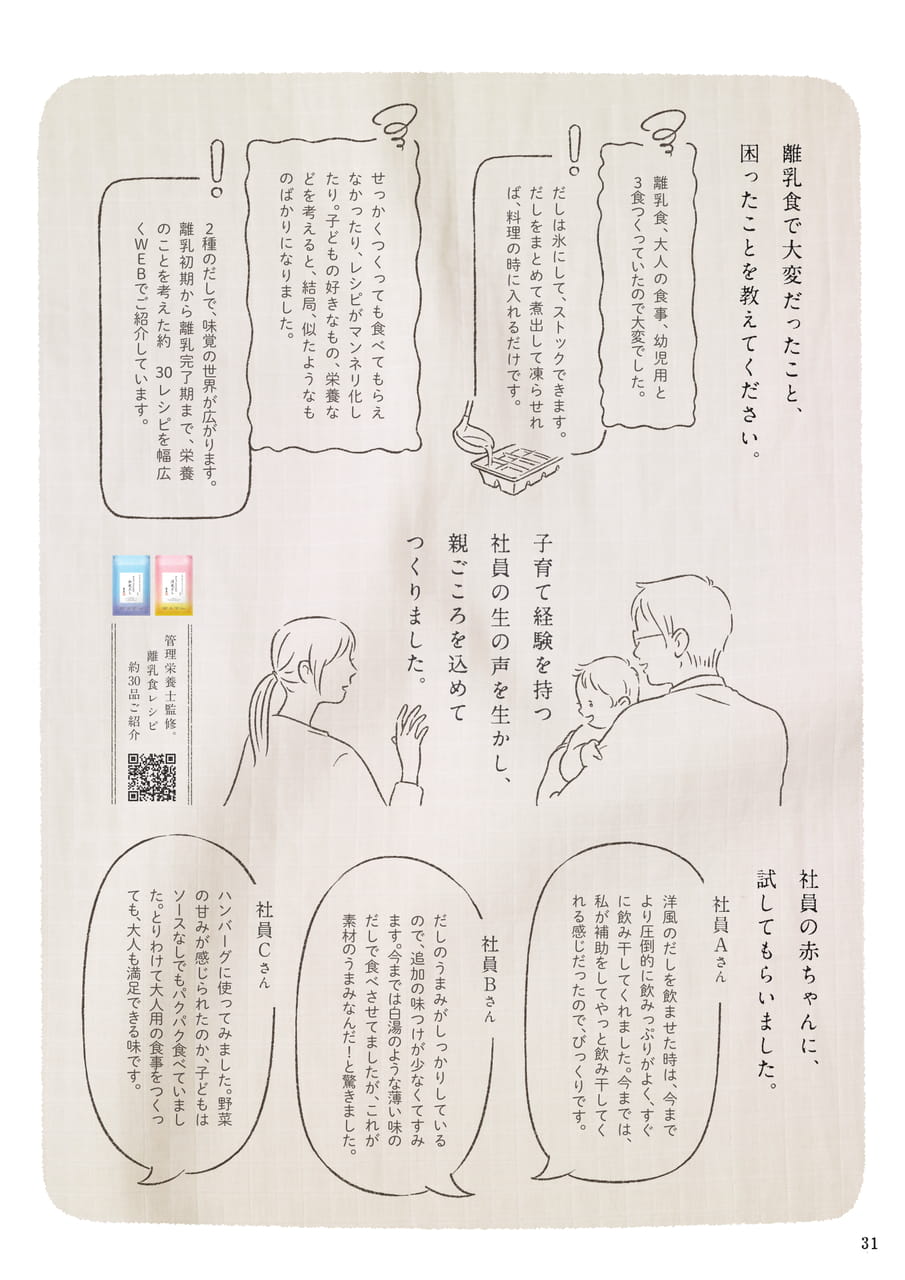 離乳食で大変だったこと、
困ったことを教えてください。
離乳食、大人の食事、幼児用と
3食つくっていたので大変でした。
だしは氷にして、ストックできます。
だしをまとめて煮出して凍らせれ
ば、料理の時に入れるだけです。
せっかくつくっても食べてもらえ
なかったり、レシピがマンネリ化し
たり。子どもの好きなもの、栄養な
どを考えると、結局、似たようなも
のばかりになりました。
2種のだしで、味覚の世界が広がります。
離乳初期から離乳完了期まで、栄養
のことを考えた約 30レシピを幅広
くWEBでご紹介しています。
子育て経験を持つ
社員の生の声を生かし、
親ごころを込めて
つくりました。
管理栄養士監修。
離乳食レシピ
約30品ご紹介
社員の赤ちゃんに、
試してもらいました。
社員Aさん
洋風のだしを飲ませた時は、今まで
より圧倒的に飲みっぷりがよく、すぐ
に飲み干してくれました。今までは、
私が補助をしてやっと飲み干してく
れる感じだったので、びっくりです。
社員Bさん
だしのうまみがしっかりしている
ので、追加の味つけが少なくてすみ
ます。今までは白湯のような薄い味の
だしで食べさせてましたが、これが
素材のうまみなんだ!と驚きました。
社員Cさん
ハンバーグに使ってみました。野菜
の甘みが感じられたのか、子どもは
ソースなしでもパクパク食べていまし
た。とりわけて大人用の食事をつくっ
ても、大人も満足できる味です。
31